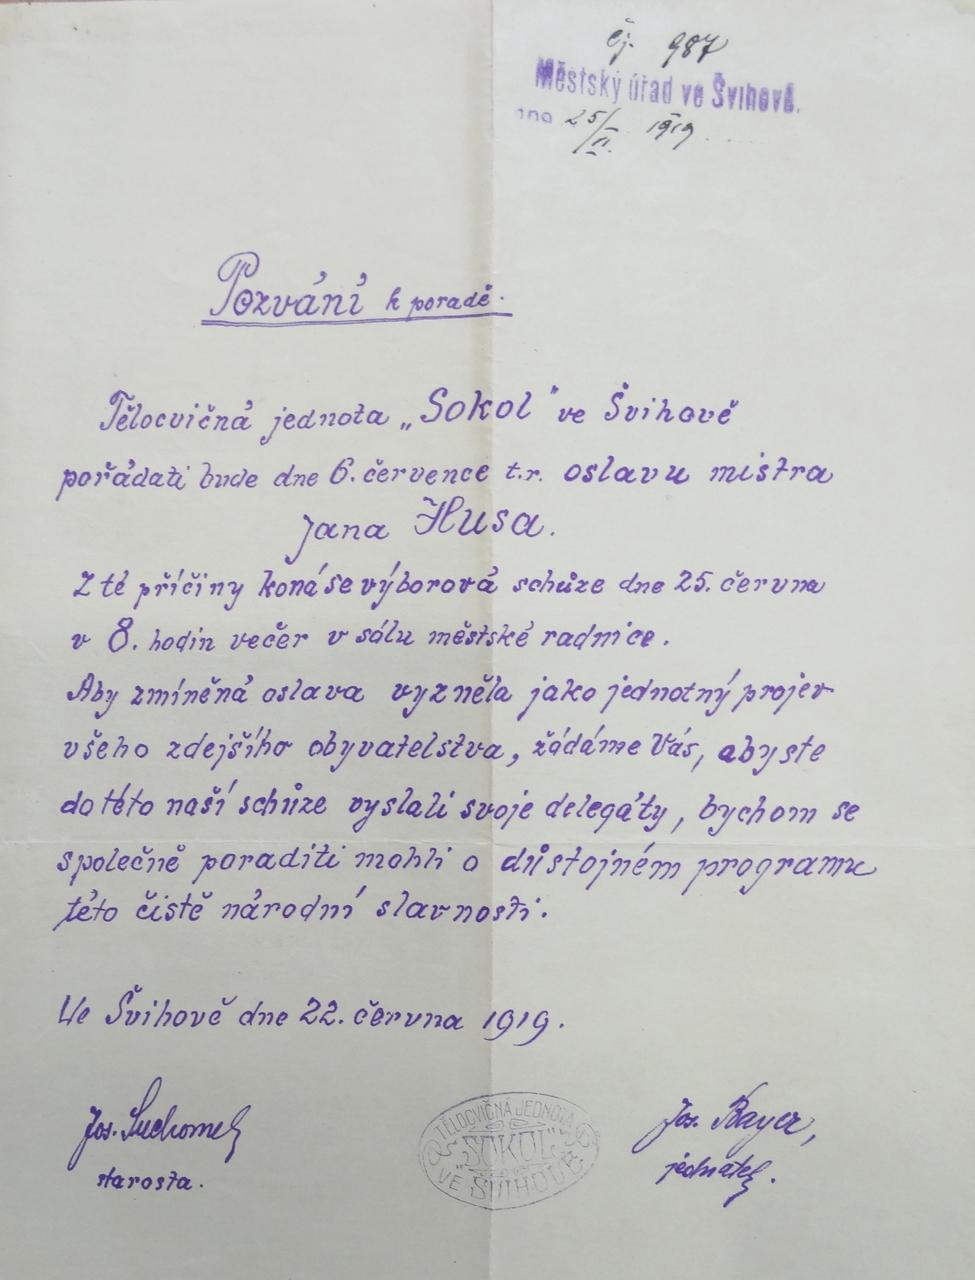 čj. 987
Městský úřad ve Švihově.
dne 25/VI. 1919
Pozvání k poradě.
Tělocvičná jednota „Sokol" ve Švihově
pořádati bude dne 6. července t.r. oslavu mistra
Jana Husa.
Z té příčiny koná se výborová schůze dne 25. června
v 8. hodin večer v sálu městské radnice.
Aby zmíněná oslava vyzněla jako jednotný projev
všeho zdejšího obyvatelstva, žádáme Vás, abyste
do této naší schůze vyslali svoje delegáty, bychom se
společně poraditi mohli o důstojném programu
této čistě národní slavnosti.
Ve Švihově dne 22. června 1919.
Jos. Suchomel
starosta.
TĚLOCVIČNÁ JEDNOTA
„SOKOL"
VE ŠVIHOVĚ
Jos. Bayer,
jednatel.